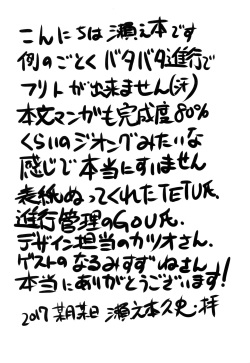 こんにちは 瀬之本です
例のごとくバタバタ進行で
フリトが出来ません(汗)
本文マンガも完成度80%
くらいのジオングみたいな
感じで本当にすいません
表紙ぬってくれたTETU氏、
進行管理のGOU氏、
デザイン担当のカツオさん、
ゲストのなるみすずねさん
本当にありがとうございます!
2017 某月某日 瀬之本久史・拝